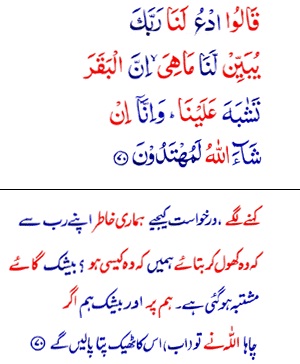 قَالُوا ادْعُ لَنَا رَبَّكَ
يُبَيِّنْ لَنَا مَاهِيَ ۙ اِنَّ الْبَقَرَ
تَشٰبَهَ عَلَيْنَا ؕ وَاِنَّاۤ اِنْ
شَآءَ اللّٰهُ لَمُهْتَدُوْنَ ﴿۷۰﴾
کہنے لگے ، درخواست کیجیے ہماری خاطر اپنے رب سے
کہ وہ کھول کر بتائے ہمیں کہ وہ کیسی ہو ؟ بیشک گائے
مشتبہ ہوگئی ہے۔ ہم پر اور بیشک ہم اگر
چاہا اللہ نے تو داب ، اس کا ٹھیک پتا پالیں گے ﴿۷۰﴾